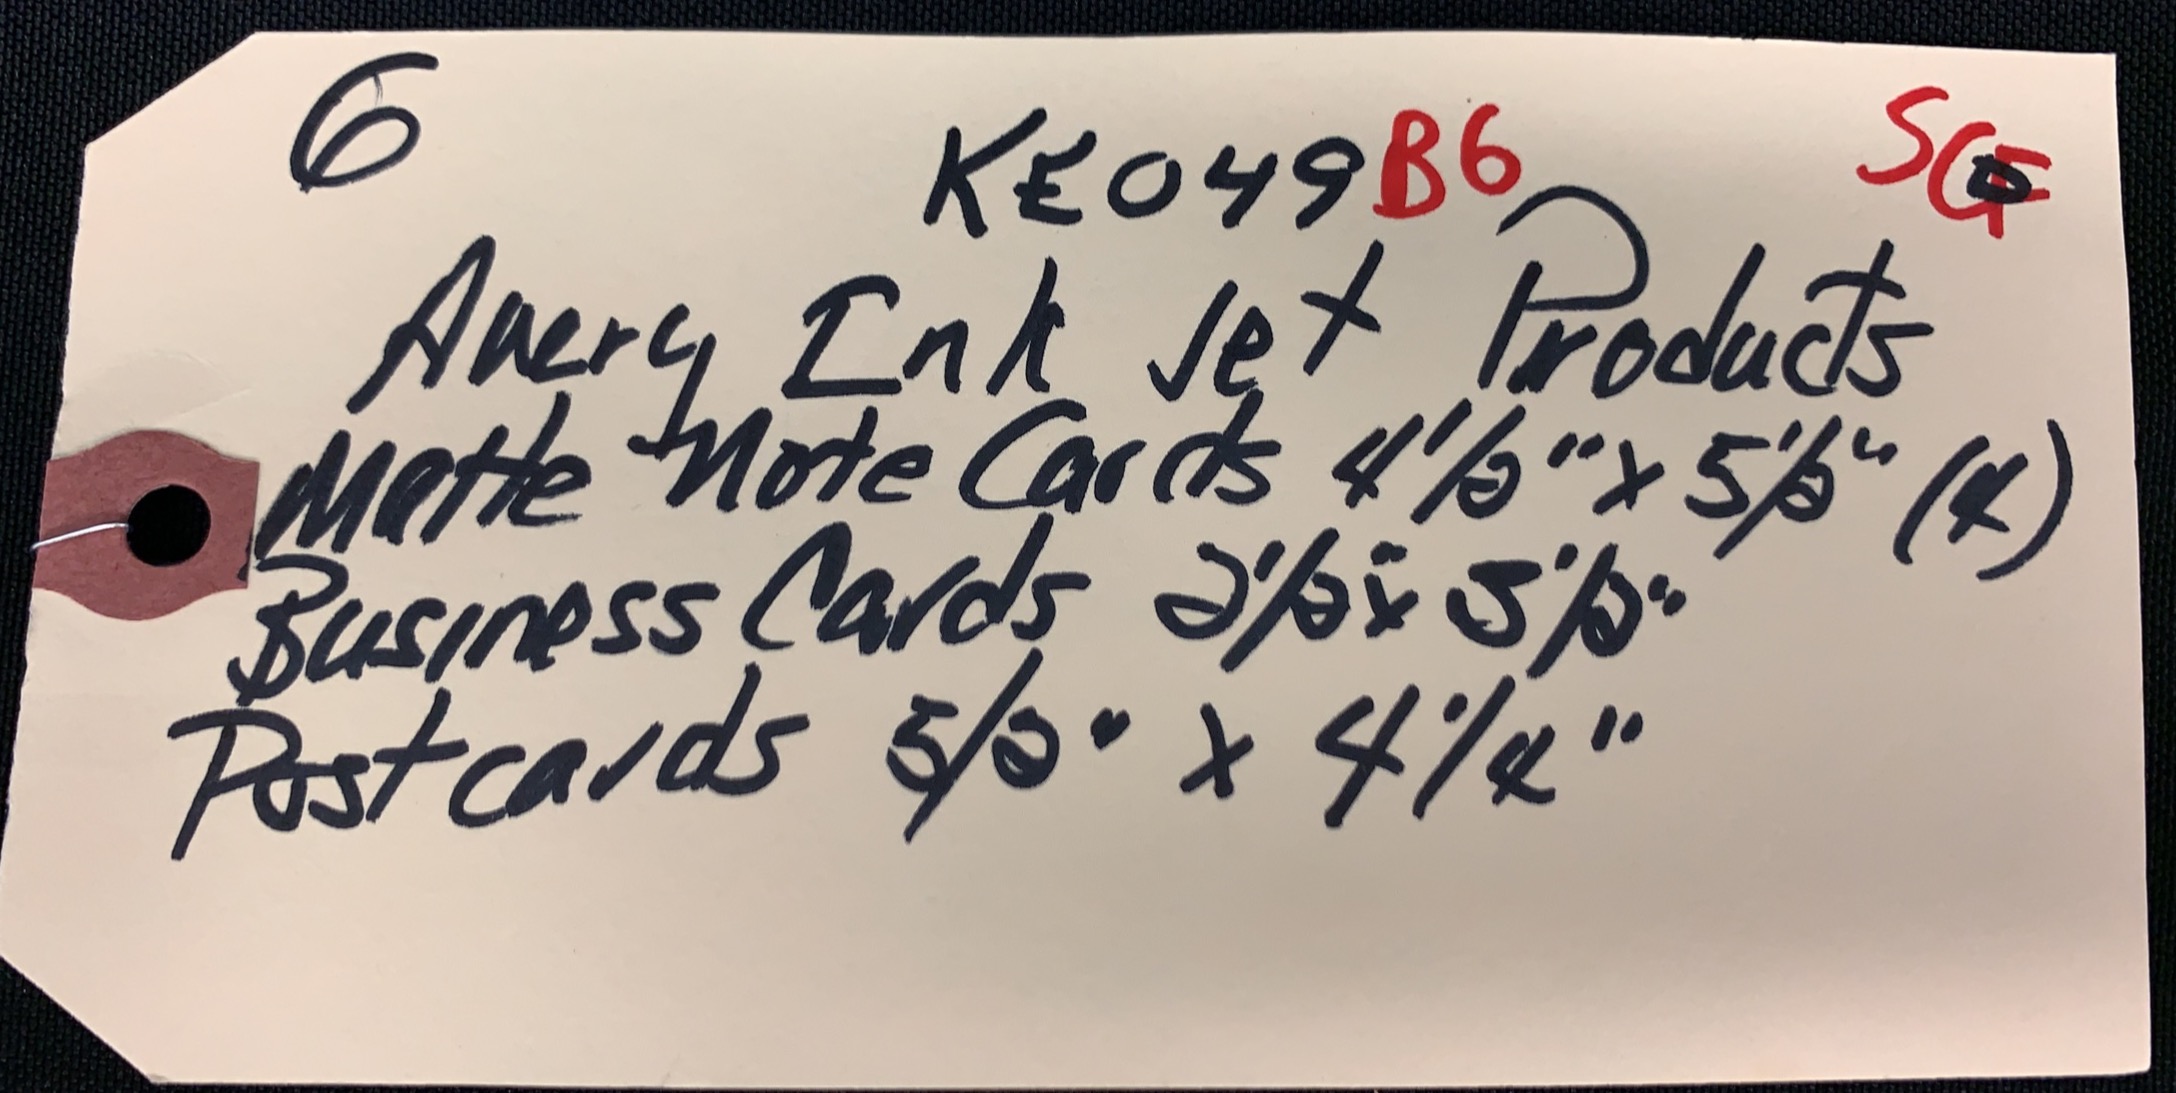 6
KE049 B6 SG
Avery Ink Jet Products
Matte Note Cards 4 1/2" x 5 1/2" (4)
Business Cards 2 1/2" x 3 1/2"
Postcards 5/2" x 4 1/4"